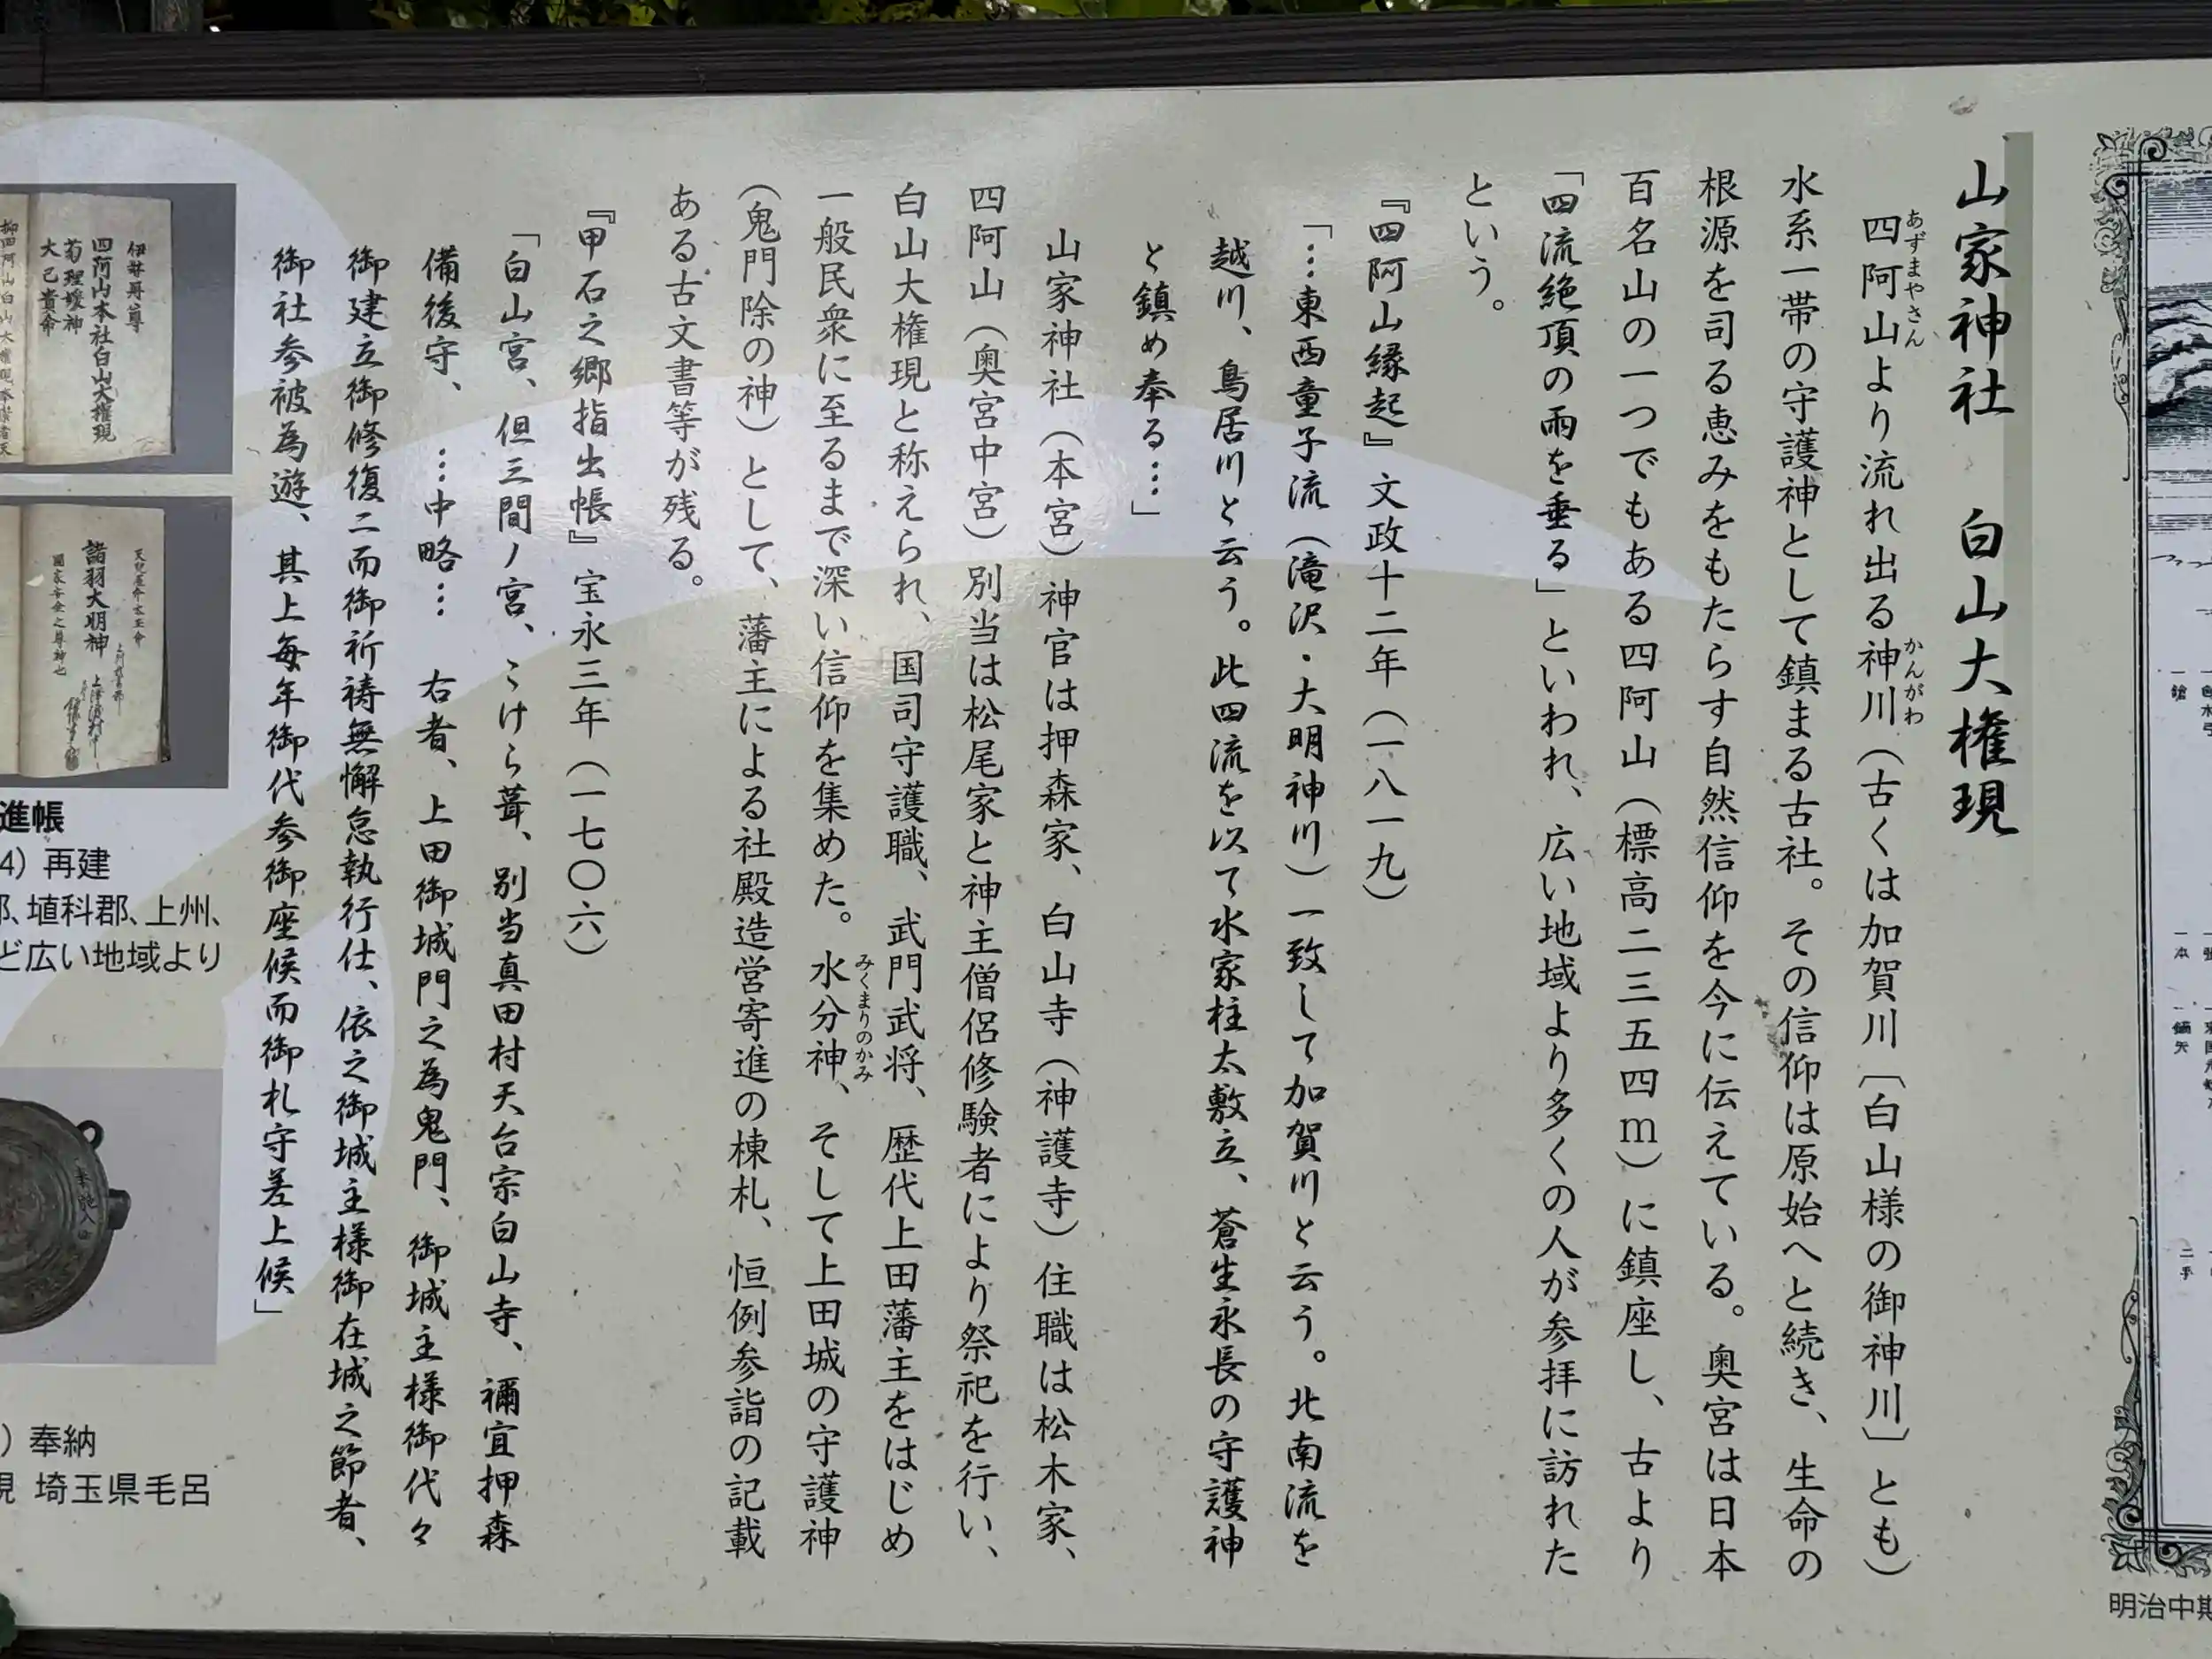 山家神社　白山大権現
四阿山より流れ出る神川（古くは加賀川〔白山様の御神川〕とも）
あずまやさん
かんがわ
水系一帯の守護神として鎮まる古社。その信仰は原始へと続き、生命の
根源を司る恵みをもたらす自然信仰を今に伝えている。奥宮は日本
百名山の一つでもある四阿山（標高二三五四ｍ）に鎮座し、古より
「四流絶頂の雨を垂る」といわれ、広い地域より多くの人が参拝に訪れた
という。
『四阿山縁起』文政十二年（一八一九）
「…東西童子流（滝沢・大明神川）一致して加賀川と云う。北南流を
越川、鳥居川と云う。此四流を以て水家柱太敷立、蒼生永長の守護神
と鎮め奉る…」
山家神社（本宮）神官は押森家、白山寺（神護寺）住職は松木家、
四阿山（奥宮中宮）別当は松尾家と神主僧侶修験者により祭祀を行い、
白山大権現と称えられ、国司守護職、武門武将、歴代上田藩主をはじめ
一般民衆に至るまで深い信仰を集めた。水分神、そして上田城の守護神
みくまりのかみ
（鬼門除の神）として、藩主による社殿造営寄進の棟札、恒例参詣の記載
ある古文書等が残る。
『甲石之郷指出帳』宝永三年（一七〇六）
「白山宮、但三間ノ宮、こけら葺、別当真田村天台宗白山寺、禰宜押森
備後守、…中略…　右者、上田御城門之為鬼門、御城主様御代々
御建立御修復二而御祈祷無懈怠執行仕、依之御城主様御在城之節者、
御社参被為遊、其上毎年御代参御座候而御札守差上候」
伊弉冉尊
四阿山本社白山大権現
菊理媛神
大己貴命
諸羽大明神
進帳
4）再建
郡、埴科郡、上州、
ど広い地域より
）奉納
現 埼玉県毛呂
明治中期